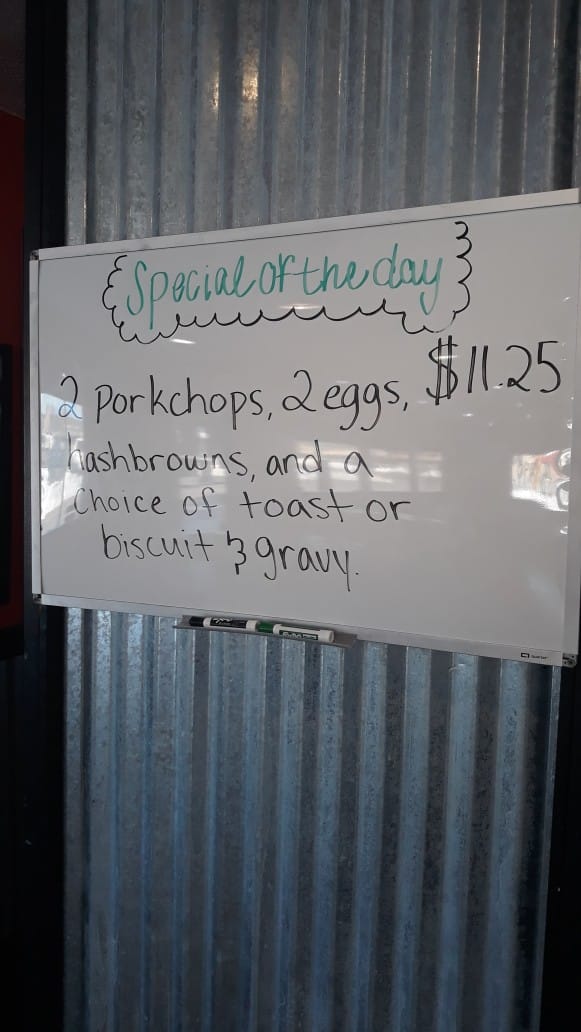 Special of the day
2 Porkchops, 2 eggs, $11.25
hashbrowns, and a
Choice of toast or
biscuit & gravy.